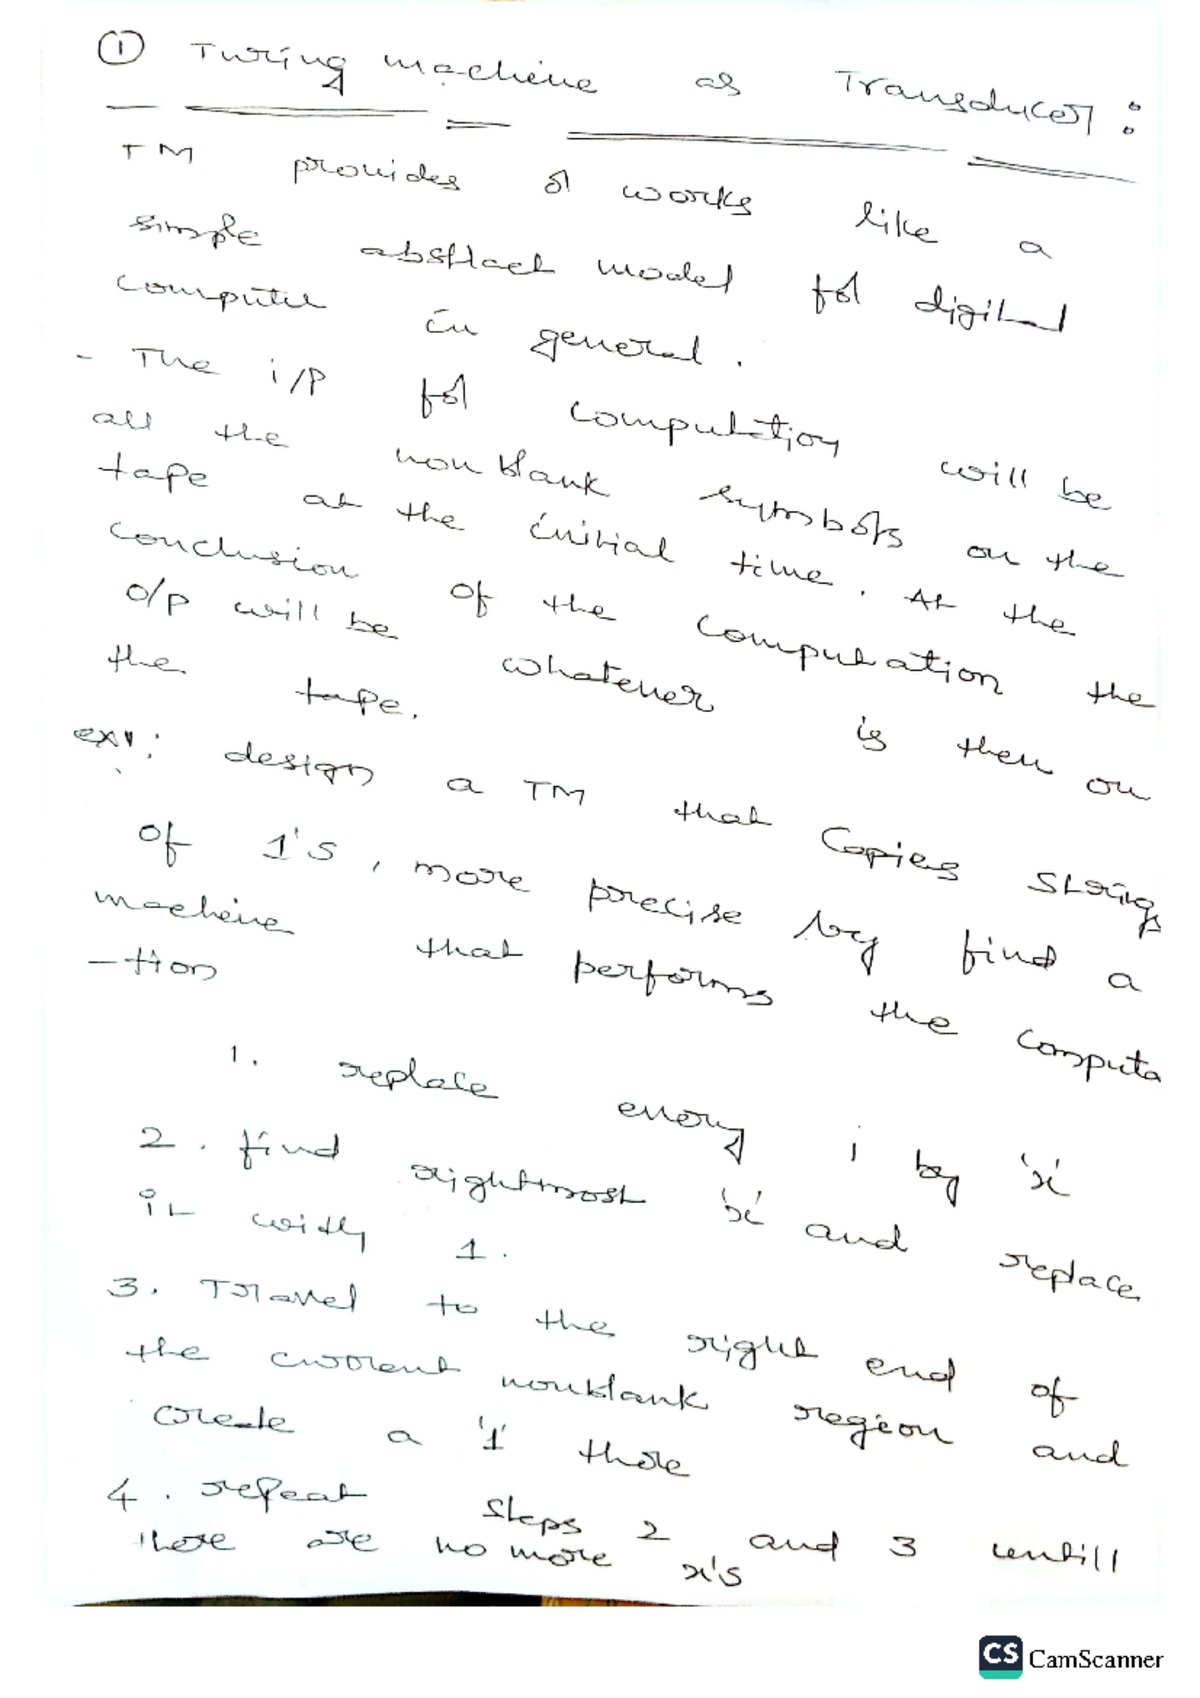 ① Turing machine as Transducer :
TM provides or works like a
simple abstract model for digital
computer in general .
- The i/p for computation will be
all the nonblank symbols on the
tape at the initial time . At the
conclusion of the computation the
o/p will be whatever is then on
the tape.
ex1: design a TM that copies strings
of 1's , more precise by find a
machine that performs the computa
-tion
1. replace every 1 by 'x'
2 . find rightmost 'x' and replace
it with 1 .
3. Travel to the right end of
the current nonblank region and
create a '1' there
4 . repeat steps 2 and 3 untill
there are no more x's
CS CamScanner